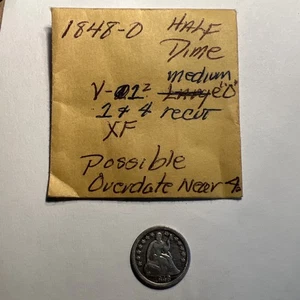 1848-O HALF
Dime
V-1? medium
Large "O"
1 & 4 recut
XF
Possible
Overdate Near 4